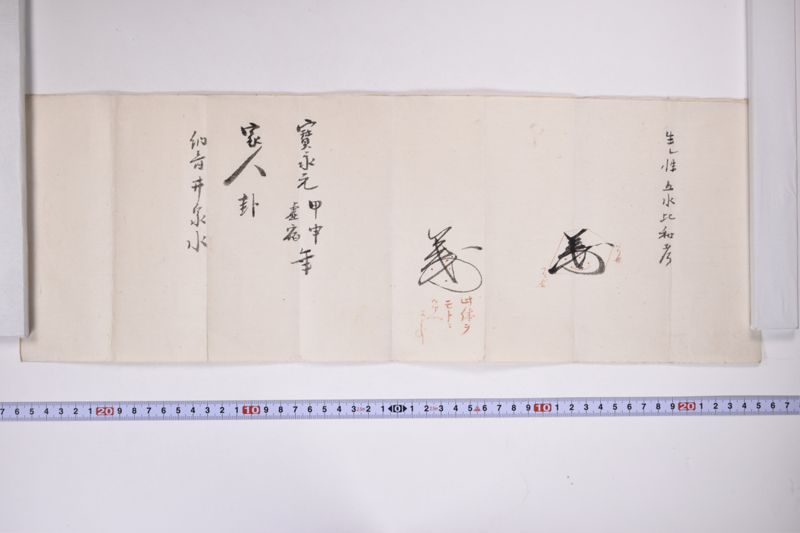 生性五水比和考
義
義
此体ヲ
寶永元甲申年
虚宿
家人卦
納音井泉水
7 6 5 4 3 2 1 20 9 8 7 6 5 4 3 2 1 10 9 8 7 6 5 4 3 2 1 0 1 2 3 4 5 6 7 8 9 10 1 2 3 4 5 6 7 8 9 20 1 2 3 4 5 6 7